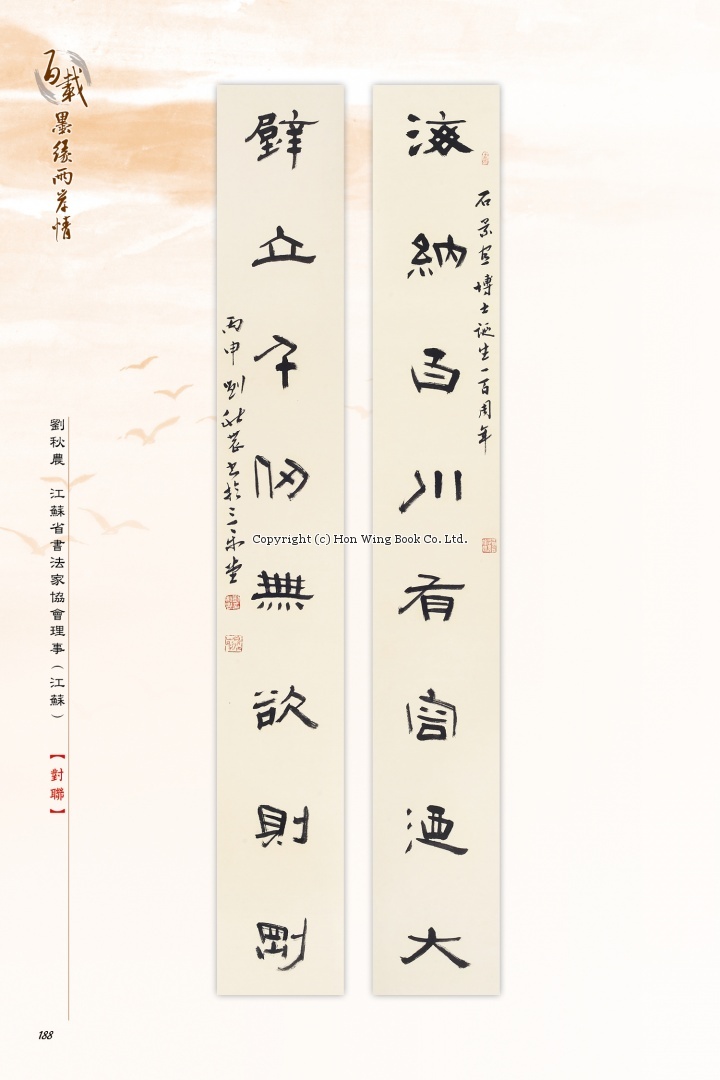 百載
墨緣兩岸情
海納百川有容迺大
石景宜博士誕生一百周年
壁立千仞無欲則剛
丙申劉秋農書於三
劉秋農 江蘇省書法家協會理事（江蘇）
【對聯】
Copyright (c) Hon Wing Book Co. Ltd.
188